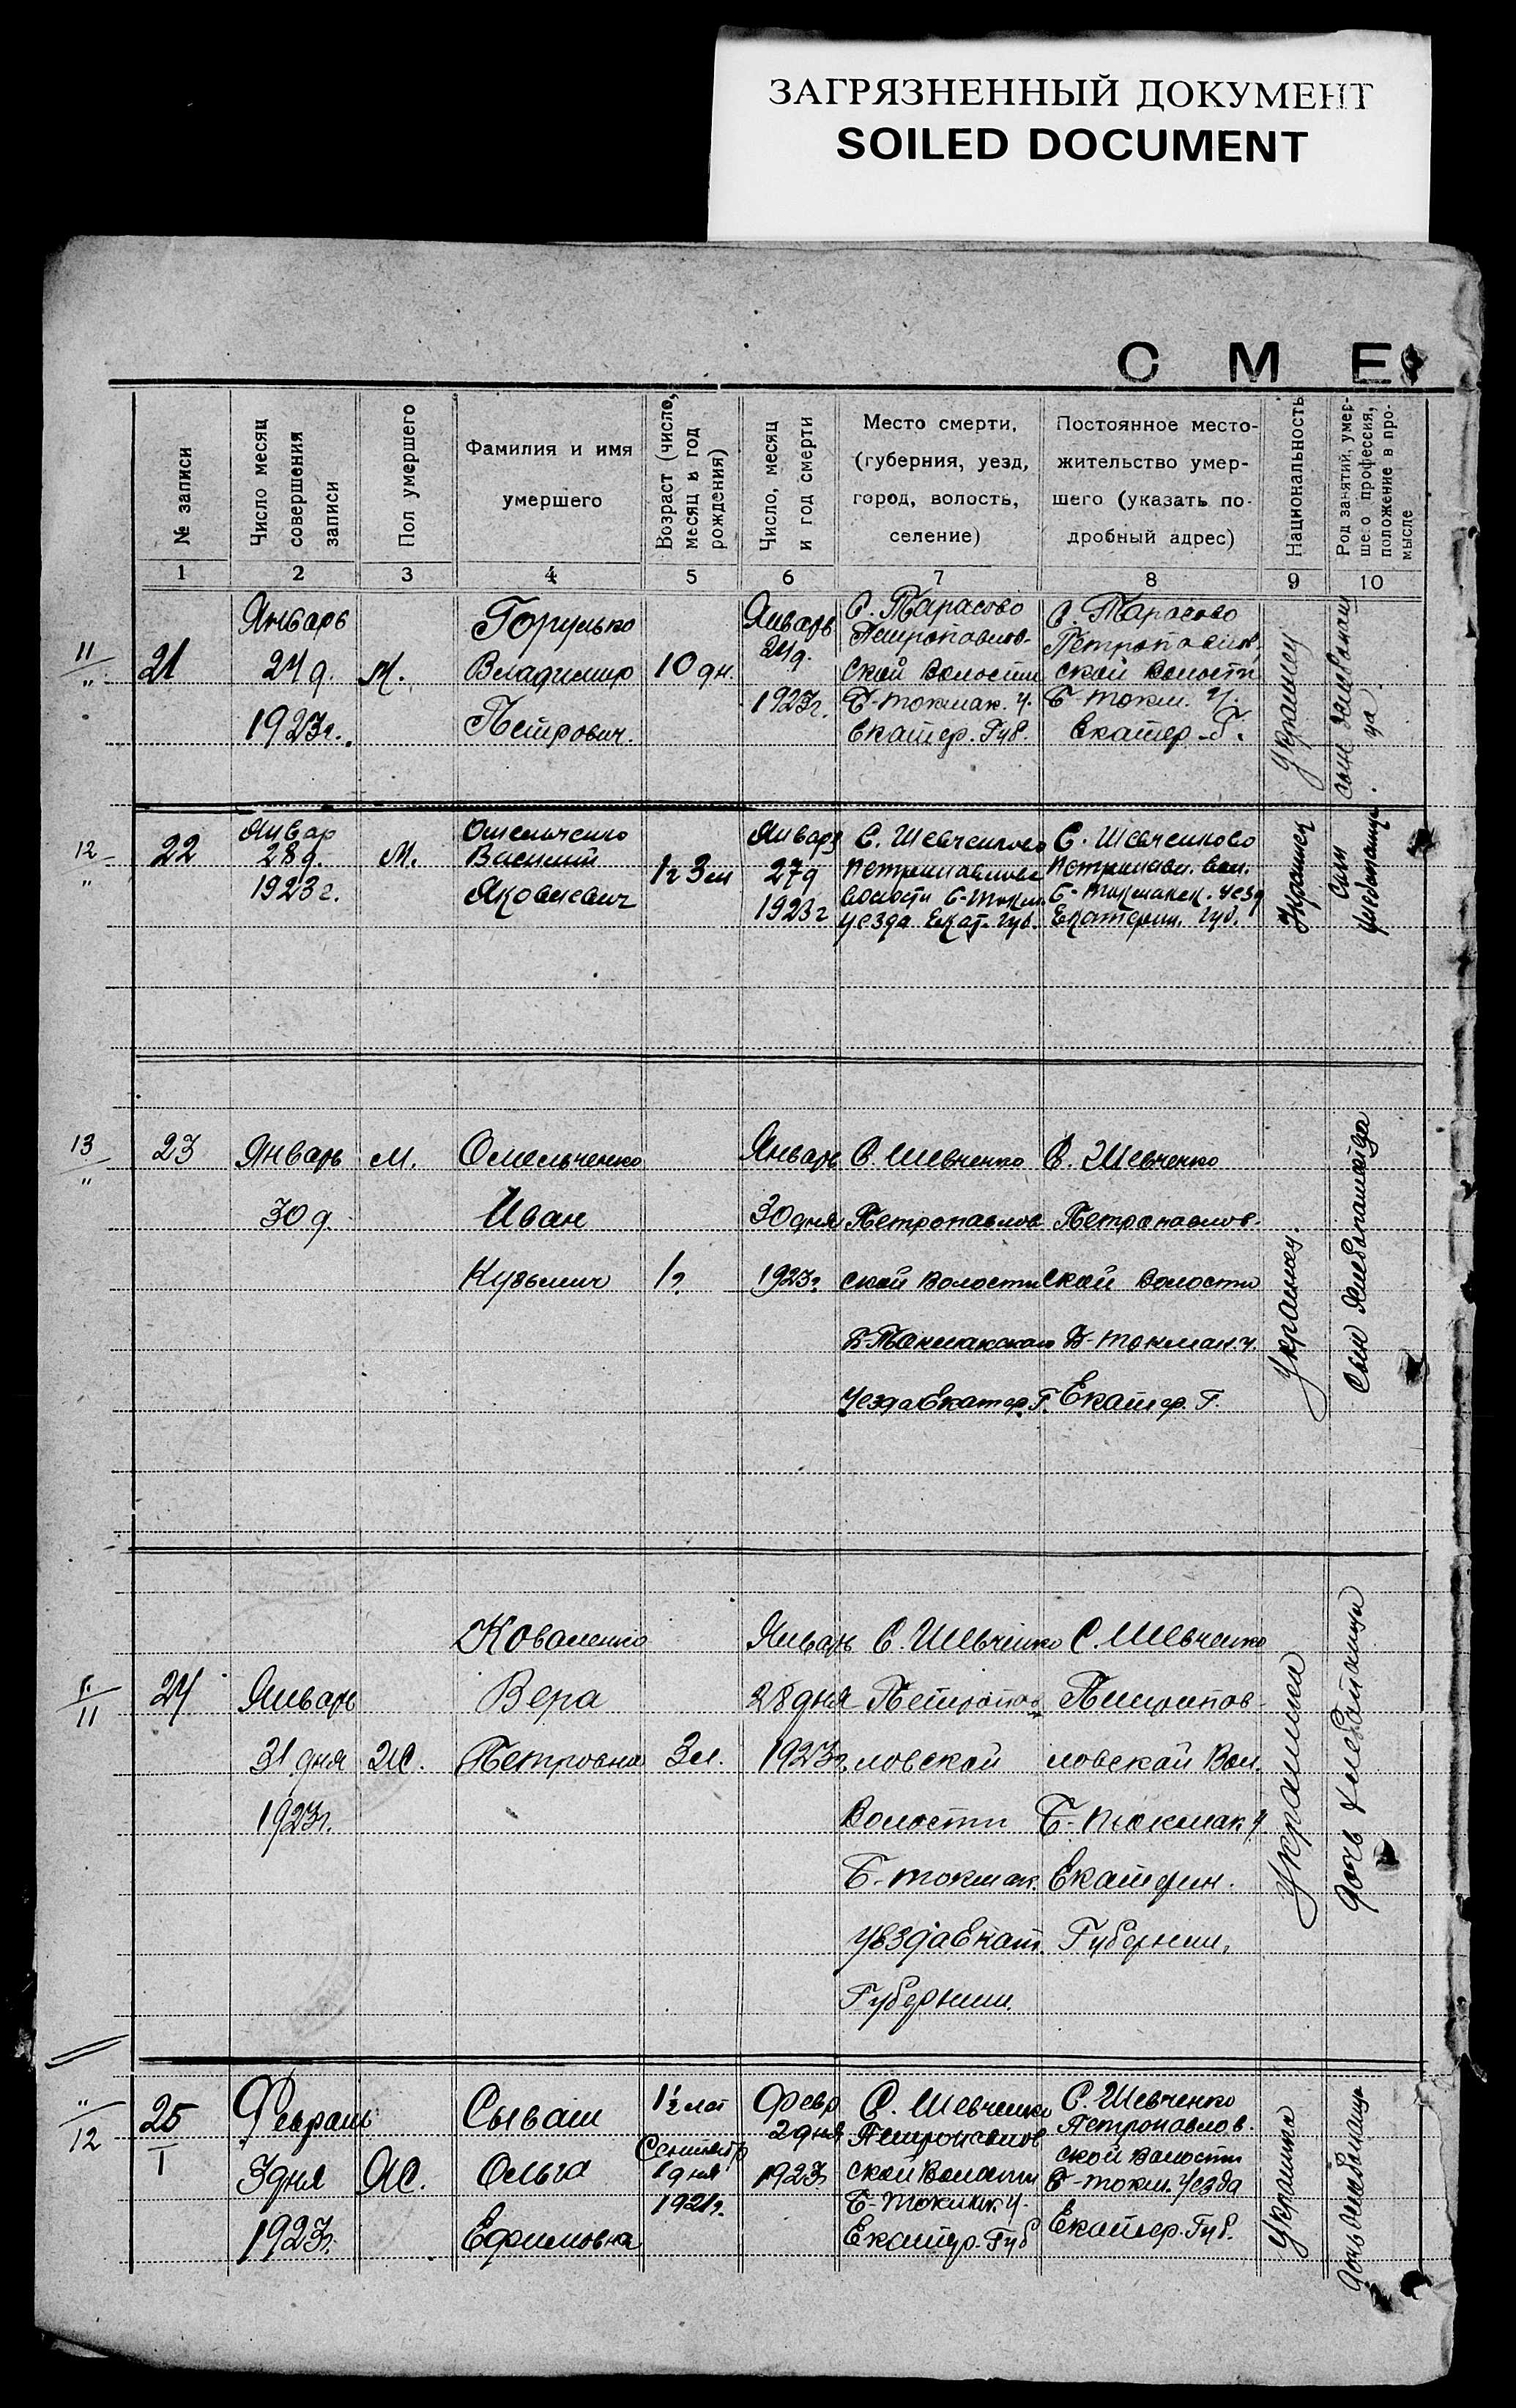 ЗАГРЯЗНЕННЫЙ ДОКУМЕНТ
SOILED DOCUMENT
С М Е
№ записи
Число месяц
совершения
записи
Пол умершего
Фамилия и имя
умершего
Возраст (число,
месяц и год
рождения)
Число, месяц
и год смерти
Место смерти,
(губерния, уезд,
город, волость,
селение)
Постоянное место-
жительство умер-
шего (указать по-
дробный адрес)
Национальность
Род занятий, умер-
шего профессия,
положение в про-
мысле
1 2 3 4 5 6 7 8 9 10
11
"
21
Январь
24 д.
1923г.
М.
Владимир
Петрович.
10 дн.
Январь
24 д.
1923г.
С. Тарасово
Петропавлов-
ской Волости
Б-токмак. у.
Екатер. Губ.
С. Тарасово
Петропавлов.
ской Волости
Б-токм. У.
Екатер. Г.
Украинец
сын хлебопаш
ца
12
"
22
Январ
28 д.
1923 г.
М.
Омельченко
Василий
Яковлевич
1г 3 м
Январь
27 д
1923 г
С. Шевченково
Петропавловск
волости Б-Токм.
уезда Екат. Губ.
С. Шевченково
Петропавл. вол.
Б-Токмакск. уезд
Екатерин. Губ.
Украинец
Сын
хлебопашца
13
"
23
Январь
30 д.
М.
Омельченко
Иван
Кузьмич
1 г.
Январь
30 дня
1923 г.
С. Шевченко
Петропавлов
ской Волости
Б-Токмакского
Уезда Екатер. Г.
С. Шевченко
Петропавлов-
ской Волости
Б-токмак. у.
Екатер. Г.
Украинец.
Сын хлебопашца
11
24
Январь
31 дня
1923г.
Ж.
Коваленко
Вера
Петровна
3 м.
Январь
28 дня
1923г.
С. Шевченко
Петропав
ловской
Волости
Б-токмак.
уезда Екат.
Губернии.
С. Шевченко
Петропав-
ловской Вол.
Б-токмак у
Екатерин.
Губернии,
Украинка
дочь хлебопашца
"
12
25
I
Февраль
3 дня
1923г.
Ж.
Сываш
Ольга
Ефимовна
1½ лет
Сентябр
1 дня
1921г.
Февр
2 дня
1923г
С. Шевченко
Петропавлов
ской Волости
Б-токмак у.
Екатер. Губ
С. Шевченко
Петропавлов.
ской Волости
Б-токм. Уезда
Екатер. Губ.
Украинка
дочь хлебопашца